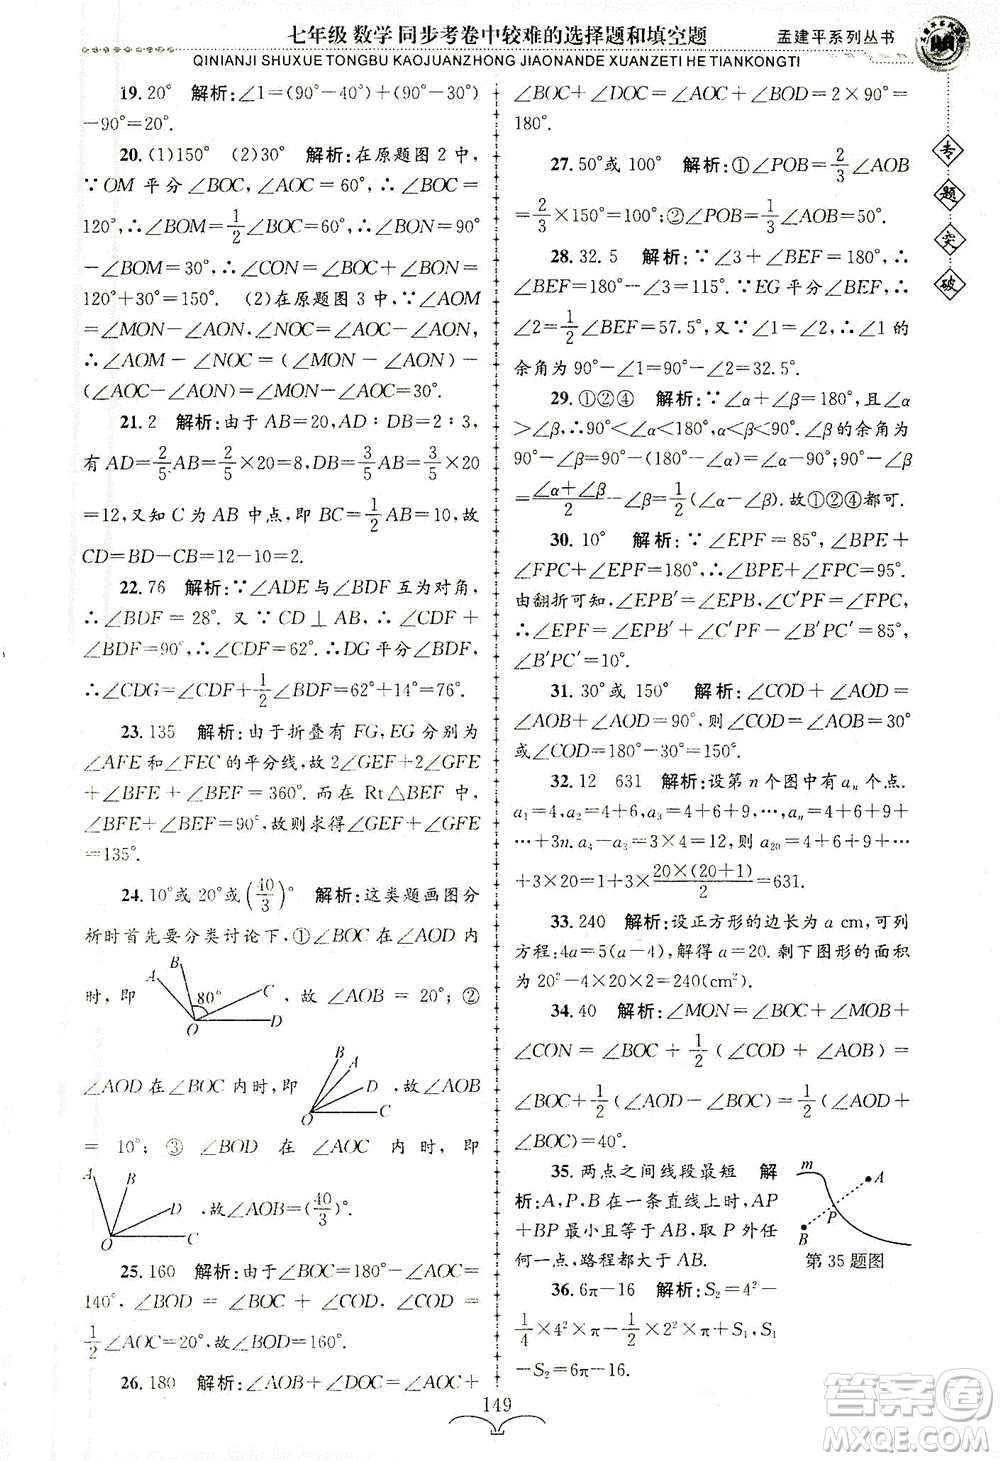 七年级 数学 同步考卷中较难的选择题和填空题
孟建平系列丛书
QINIANJI SHUXUE TONGBU KAOJUANZHONG JIAONANDE XUANZETI HE TIANKONGTI
专
题
突
破
19. 20° 解析:∠1=(90°-40°)+(90°-30°)
-90°=20°.
20. (1)150° (2)30° 解析:在原题图2中,
∵OM平分∠BOC,∠AOC=60°,∴∠BOC=
120°,∴∠BOM=1/2∠BOC=60°. 又∵∠NOC=
∠BOM=30°,∴∠CON=∠BOC+∠NOC=
120°+30°=150°. (2)在原题图3中,∵∠AOM
=∠MON-∠AON,∠NOC=∠AOC-∠AON,
∴∠AOM-∠NOC=(∠MON-∠AON)-
(∠AOC-∠AON)=∠MON-∠AOC=30°.
21. 2 解析:由于AB=20,AD:BD=2:3,
有AD=2/5AB=2/5×20=8,BD=3/5AB=3/5×20
=12,又知C为AB中点,即BC=1/2AB=10,故
CD=BD-CB=12-10=2.
22. 76 解析:∵∠ADE与∠BDF互为对角,
∴∠BDF=28°. 又∵CD⊥AB,∴∠CDF+
∠BDF=90°,∴∠CDF=62°. ∵DG平分∠BDF,
∴∠CDG=∠CDF+1/2∠BDF=62°+14°=76°.
23. 135 解析:由于折叠有FG,EG分别为
∠AFE和∠FEC的平分线,故2∠GEF+2∠GFE
+∠BFE+∠BEF=360°. 而在Rt△BEF中,
∠BFE+∠BEF=90°,故则求得∠GEF+∠GFE
=135°.
24. 10°或20°或(40/3)° 解析:这类题画图分
析时首先要分类讨论下,①∠BOC在∠AOD内
时,即
A
B
80°
C
O
D
,故∠AOB=20°;②
∠AOD在∠BOC内时,即
B
A
D
O
C
,故∠AOB
=10°;③∠BOD在∠AOC内时,即
A
B
D
O
C
,故∠AOB=(40/3)°.
25. 160 解析:由于∠BOC=180°-∠AOC=
140°,∠BOD=∠BOC+∠COD=∠BOC+
1/2∠AOC=20°,故∠BOD=160°.
26. 180 解析:∠AOB+∠DOC=∠AOC+
∠BOC+∠DOC=∠AOC+∠BOD=2×90°=
180°.
27. 50°或100° 解析:①∠POB=2/3∠AOB
=2/3×150°=100°;②∠POB=1/3∠AOB=50°.
28. 32.5 解析:∵∠3+∠BEF=180°,∴
∠BEF=180°-∠3=115°. ∵EG平分∠BEF,∴
∠2=1/2∠BEF=57.5°,又∵∠1=∠2,∴∠1的
余角为90°-∠1=90°-∠2=32.5°.
29. ①②④ 解析:∵∠α+∠β=180°,且∠α
>∠β,∴90°<∠α<180°,∠β<90°,∴∠β的余角为
90°-∠β=90°-(180°-∠α)=∠α-90°,90°-∠β
=(∠α+∠β)/2-∠β=1/2(∠α-∠β). 故①②④都可.
30. 10° 解析:∵∠EPF=85°,∴∠BPE+
∠FPC+∠EPF=180°,∴∠BPE+∠FPC=95°.
由翻折可知,∠EPB′=∠BPE,∠C′PF=∠FPC,
又∵∠EPF=∠EPB′-∠B′PC′+∠C′PF=85°,
∴∠B′PC′=10°.
31. 30°或150° 解析:∠COD+∠AOD=
∠AOB+∠AOD=90°,则∠COD=∠AOB=30°
或∠COD=180°-30°=150°.
32. 12 631 解析:设第n个图中有aₙ个点.
a₁=4,a₂=4+6,a₃=4+6+9,…,aₙ=4+6+9+…
+3n. a₄-a₃=3×4=12,故a₂₀=4+6+9+…
+3×20=1+3×20×(20+1)/2=631.
33. 240 解析:设正方形的边长为a cm,可列
方程:4a=5(a-4),解得a=20. 剩下图形的面积
为20²-4×20×2=240(cm²).
34. 40 解析:∠MON=∠BOC+∠MOB+
∠CON=∠BOC+1/2(∠COD+∠AOB)=
∠BOC+1/2(∠AOD-∠BOC)=1/2(∠AOD+
∠BOC)=40°.
35. 两点之间线段最短 解
析:A,P,B在一条直线上时,AP
+BP最小且等于AB,取P外任
何一点,路程都大于AB.
m
A
P
B
第35题图
36. 6π-16 解析:S₂=4²-
1/4×4²×π-1/2×2²×π+S₁,S₁
-S₂=6π-16.
149
答案卷